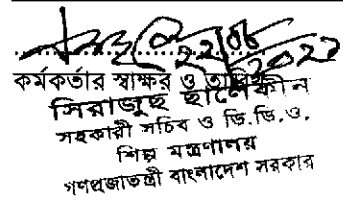 কর্মকর্তার স্বাক্ষর ও তারিখ
সিরাজুছ ছালেকীন
সহকারী সচিব ও ডি.ডি.ও.
শিল্প মন্ত্রণালয়
গণপ্রজাতন্ত্রী বাংলাদেশ সরকার